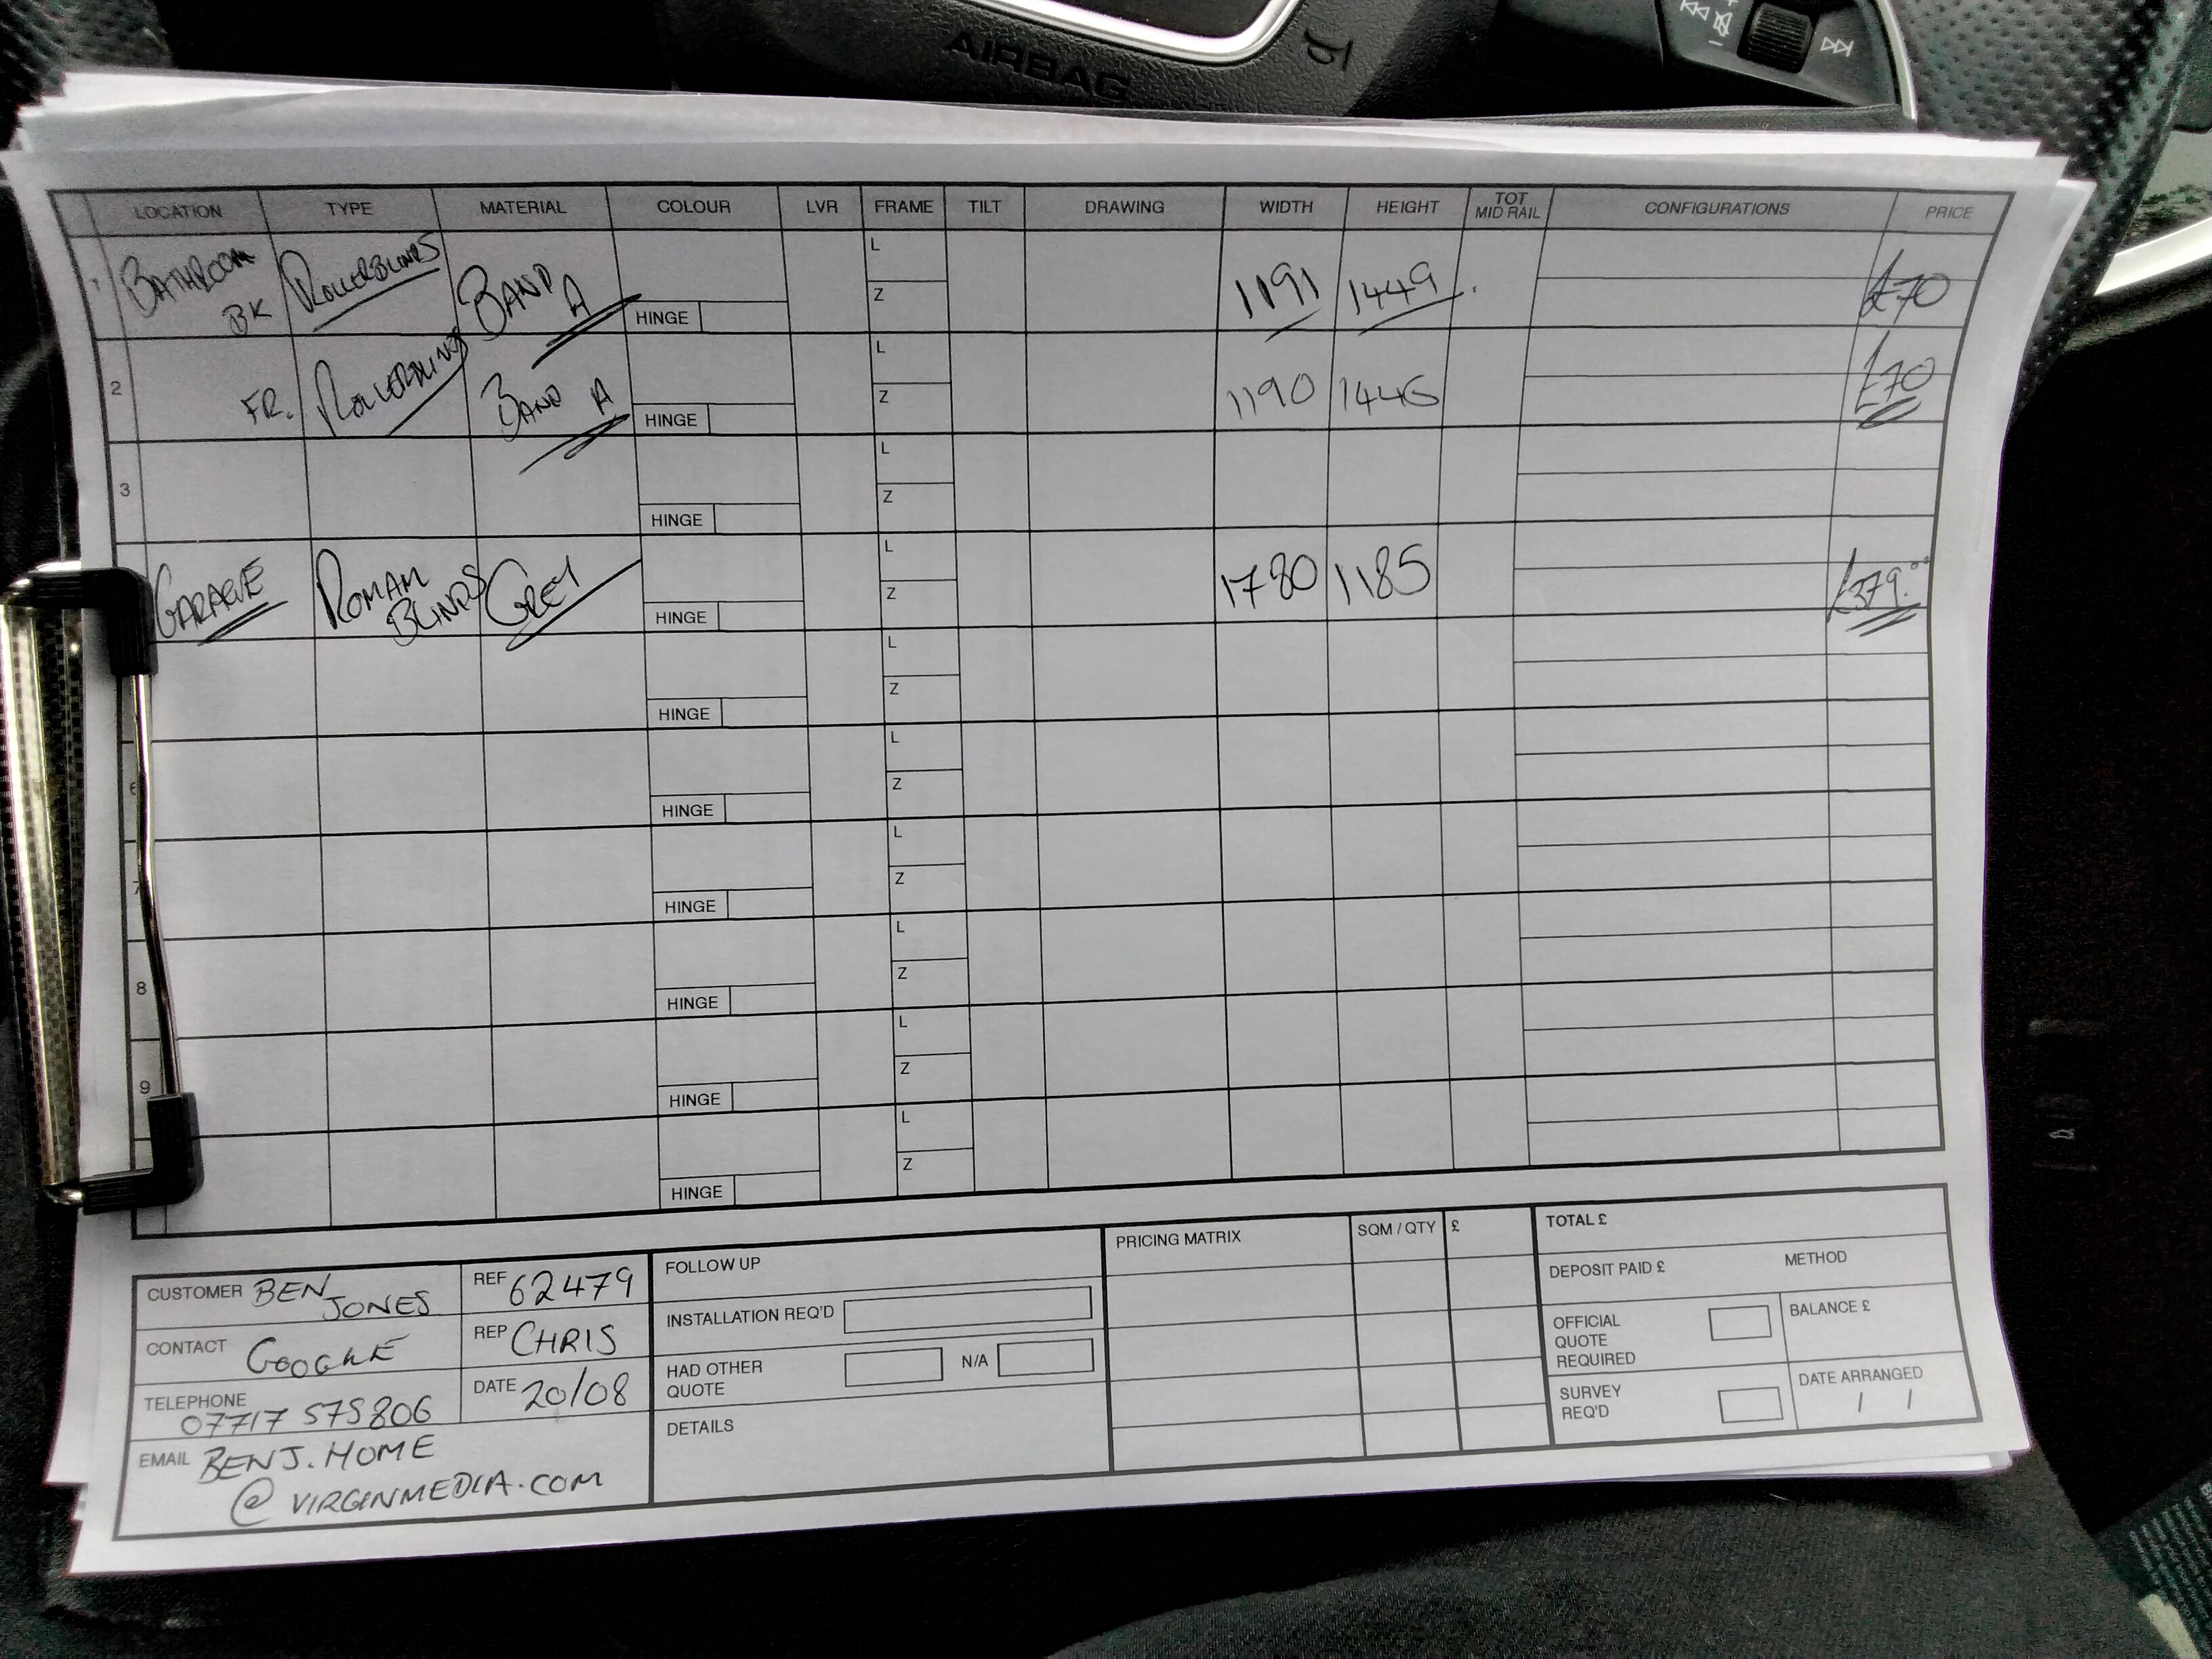 AIRBAG
LOCATION TYPE MATERIAL COLOUR LVR FRAME TILT DRAWING WIDTH HEIGHT TOT MID RAIL CONFIGURATIONS PRICE
1 BATHROOM BK ROLLERBLINDS BAND A HINGE L Z 1191 1449 £70
2 FR. ROLLERBLINDS BAND A HINGE L Z 1190 1446 £70
3 HINGE L Z
GARAGE ROMAN BLINDS GREY HINGE L Z 1780 1185 £379.00
HINGE L Z
6 HINGE L Z
7 HINGE L Z
8 HINGE L Z
9 HINGE L Z
HINGE L Z
CUSTOMER BEN JONES
REF 62479
CONTACT GOOGLE
REP CHRIS
TELEPHONE 07717 575806
DATE 20/08
EMAIL BENJ.HOME
@VIRGINMEDIA.COM
FOLLOW UP
INSTALLATION REQ'D
HAD OTHER QUOTE N/A
DETAILS
PRICING MATRIX SQM / QTY £
TOTAL £
DEPOSIT PAID £ METHOD
OFFICIAL QUOTE REQUIRED
BALANCE £
SURVEY REQ'D
DATE ARRANGED
/ /